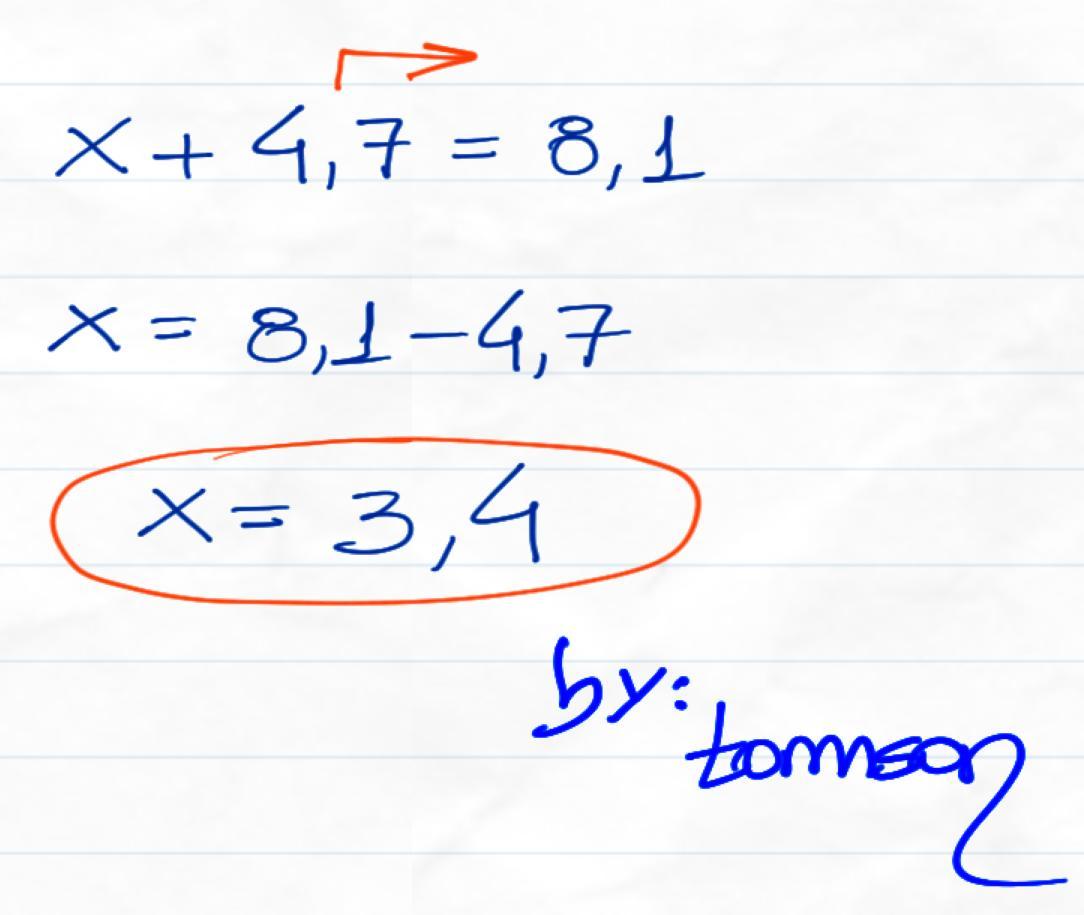 x + 4,7 = 8,1
x = 8,1 - 4,7
x = 3,4
by:
tomson